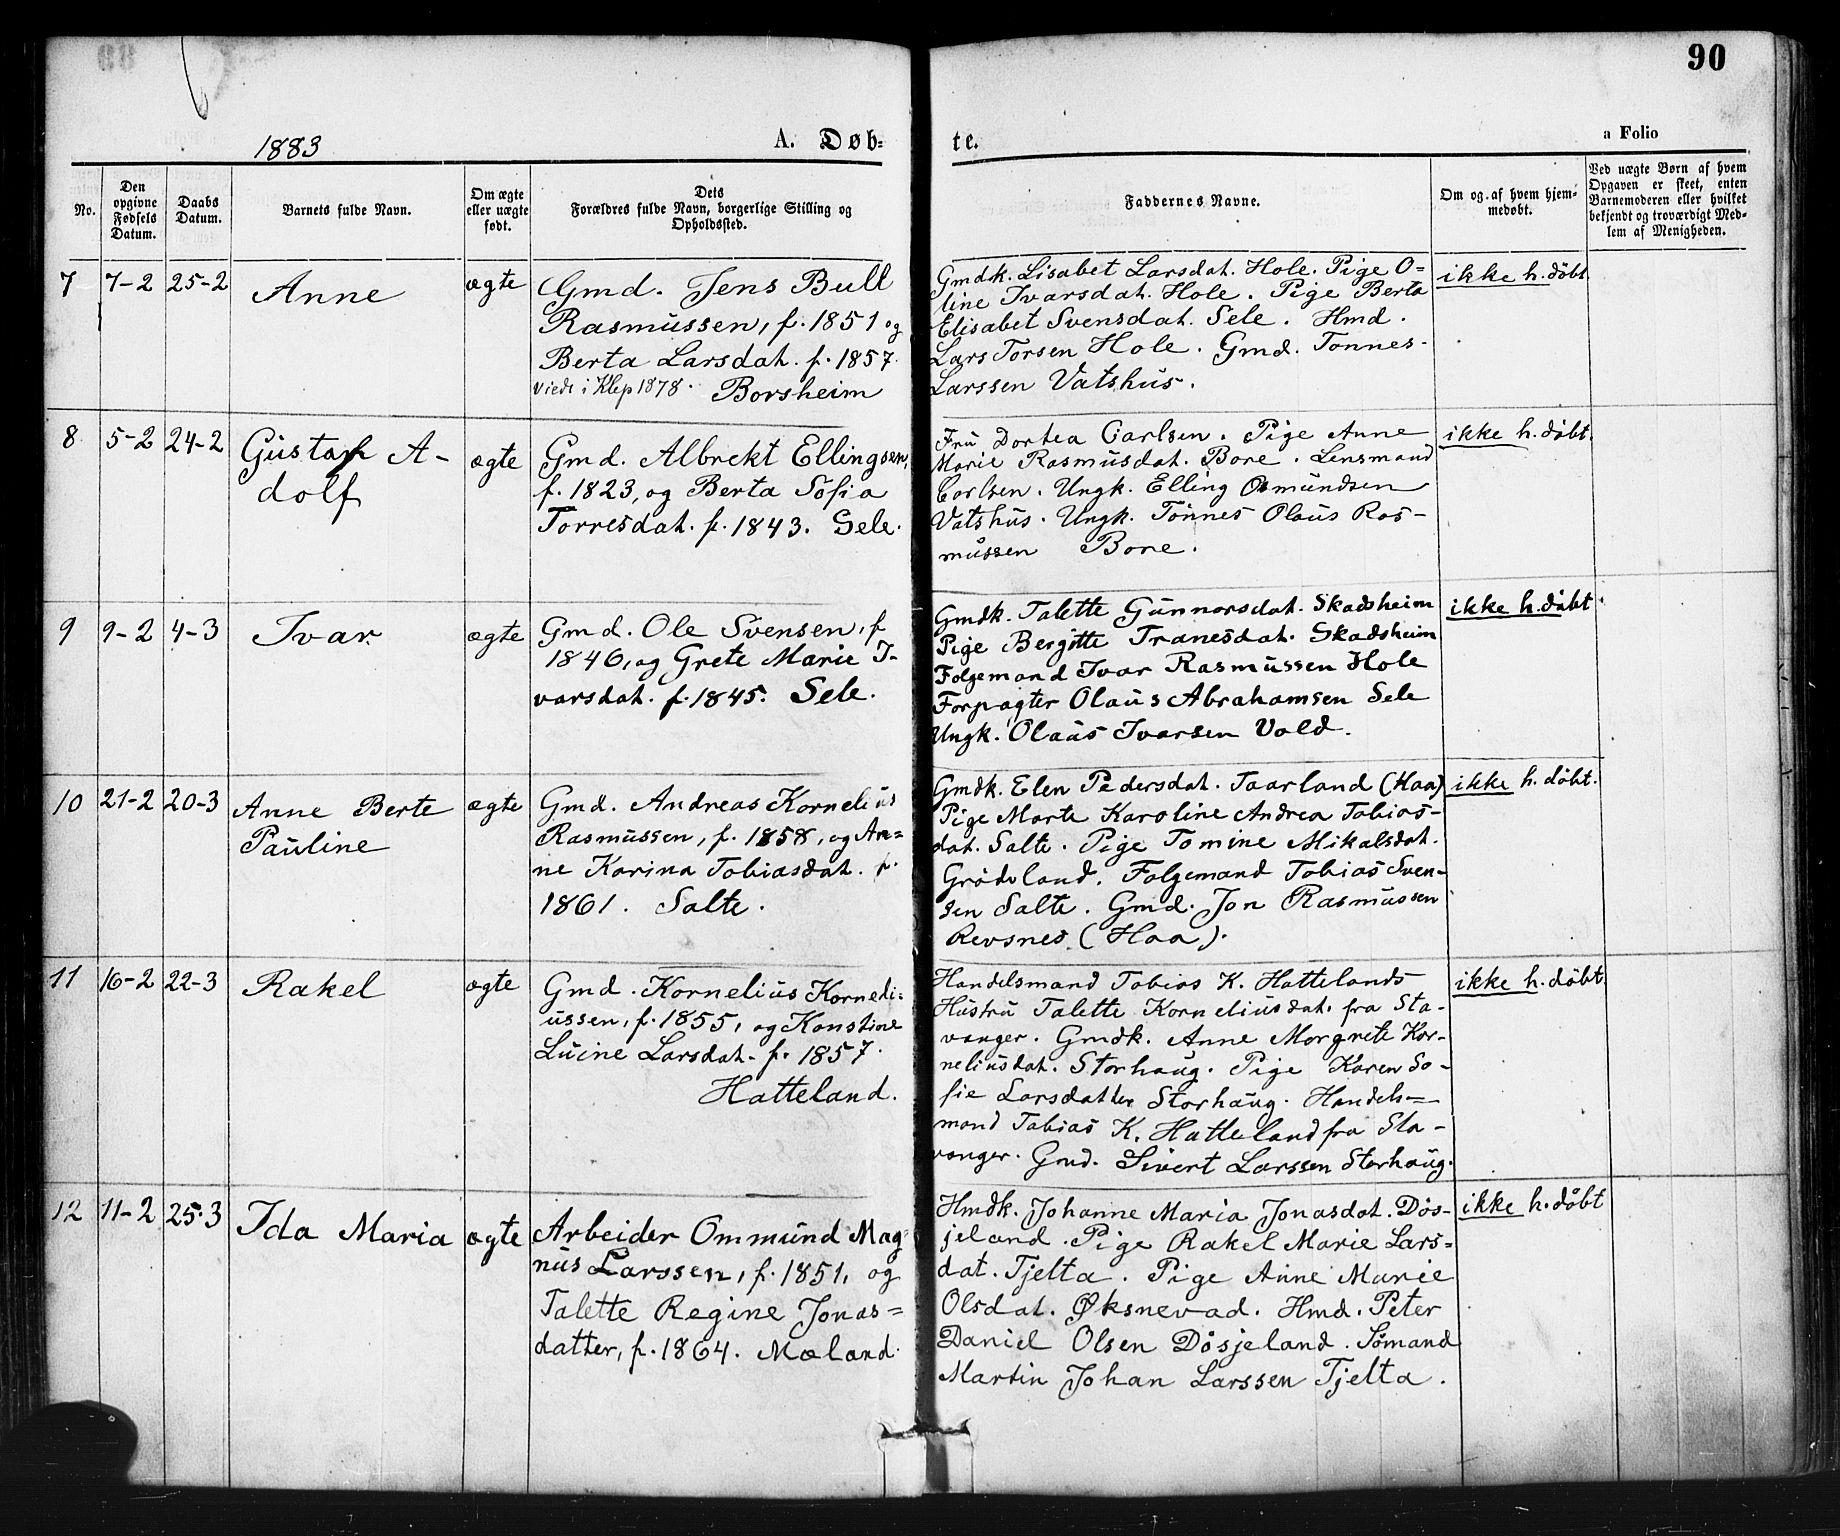 90
1883
A. Døb=
te.
a Folio
No.
Den opgivne Fødsels Datum.
Daabs Datum.
Barnets fulde Navn.
Om ægte eller uægte født.
Dets Forældres fulde Navn, borgerlige Stilling og Opholdssted.
Faddernes Navne.
Om og af hvem hjemmedøbt.
Ved uægte Børn af hvem Opgaven er skeet, enten Barnemoderen eller hvilket bekjendt og troværdigt Medlem af Menigheden.
7
7-2
25-2
Anne
ægte
Gmd. Jens Bull
Rasmussen, f. 1851 og
Berta Larsdat. f. 1857.
Viede i Klep 1878. Borsheim
Gmdk. Lisabet Larsdat. Hole. Pige O=
line Ivarsdat. Hole. Pige Berta
Elisabet Svensdat. Sele. Hmd.
Lars Torsen Hole. Gmd. Tønnes
Larssen Vatshus.
ikke h. døbt
8
5-2
24-2
Gustaf A-
dolf
ægte
Gmd. Albrekt Ellingsen,
f. 1823, og Berta Sofia
Torresdat. f. 1843. Sele.
Fru Dortea Carlsen. Pige Anne
Marie Rasmusdat. Bore. Lensmand
Carlsen. Ungk. Elling Osmundsen
Vatshus. Ungk. Tønnes Olaus Ras-
mussen Bore.
ikke h. døbt.
9
9-2
4-3
Ivar
ægte
Gmd. Ole Svensen, f
1846, og Grete Marie I-
varsdat. f. 1845. Sele.
Gmdk. Talette Gunnarsdat. Skadsheim
Pige Bergitte Tranesdat. Skadsheim
Folgemand Ivar Rasmussen Hole
Forpagter Olaus Abrahamsen Sele
Ungk. Olaus Ivarsen Vold.
ikke h. døbt
10
21-2
20-3
Anne Berte
Pauline
ægte
Gmd. Andreas Kornelius
Rasmussen, f. 1858, og An=
ne Karina Tobiasdat. f.
1861. Salte.
Gmdk. Elen Pedersdat. Taarland (Haa)
Pige Marte Karoline Andrea Tobias-
dat. Salte. Pige Tomine Mikalsdat.
Grødeland. Folgemand Tobias Sven-
sen Salte. Gmd. Jon Rasmussen
Revsnes (Haa).
ikke h. døbt.
11
16-2
22-3
Rakel
ægte
Gmd. Kornelius Korneli=
ussen, f. 1855, og Konstine
Luine Larsdat. f. 1857.
Hatteland.
Handelsmand Tobias K. Hattelands
Hustru Talette Korneliusdat. fra Sta-
vanger. Gmdk. Anne Margrete Kor-
neliusdat. Storhaug. Pige Karen So-
fie Larsdatter Storhaug. Handels=
mand Tobias K. Hatteland fra Sta-
vanger. Gmd. Sivert Larssen Storhaug.
ikke h. døbt.
12
11-2
25.3
Ida Maria
ægte
Arbeider Ommund Mag=
nus Larssen, f. 1851, og
Talette Regine Jonas=
datter, f. 1864. Mæland.
Hmdk. Johanne Maria Jonasdat. Døs-
jeland. Pige Rakel Marie Lars=
dat. Tjelta. Pige Anne Marie
Olsdat. Øksnevad. Hmd. Peter
Daniel Olsen Døsjeland. Sømand
Martin Johan Larssen Tjelta.
ikke h. døbt